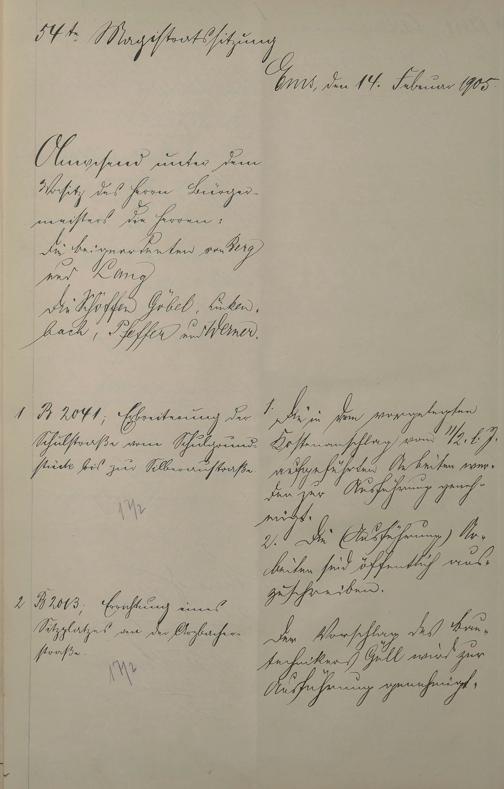 54te Magistratssitzung
Ems, den 14. Februar 1905.
Anwesend unter dem
Vorsitz des Herrn Bürger-
meisters die Herren:
die Beigeordneten von Berg
und Lang
die Schöffen Göbel, Linken-
bach, Pfeffer und Werner.
1 B 2041; Erbreiterung der
Schulstraße vom Schulgrund-
stück bis zur Silberaustraße
17/2
1. Die in dem vorgelegten
Kostenanschlag vom 11/2. l. J.
aufgeführten Arbeiten wer-
den zur Ausführung geneh-
migt.
2. Die (Ausführung) Ar-
beiten sind öffentlich aus-
zuschreiben.
2 B 2013; Errichtung eines
Sitzplatzes an der Arzbacher-
straße.
17/2
Der Vorschlag des Bau-
technikers Göll wird zur
Ausführung genehmigt.